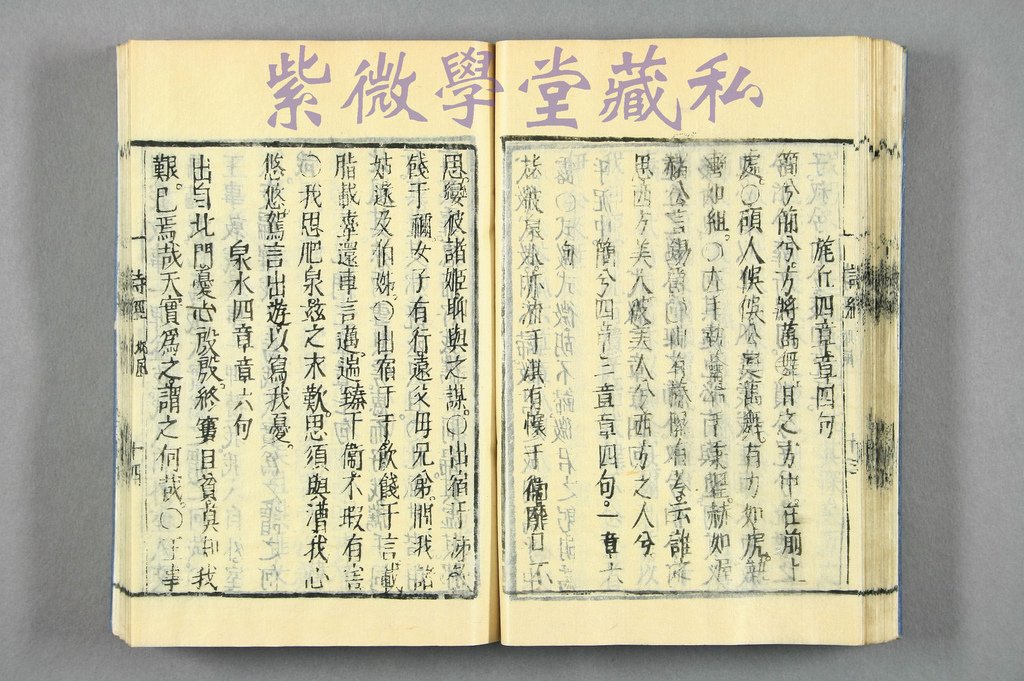 紫微學堂藏私
詩經
十三
旄丘四章章四句
簡兮簡兮方將萬舞。日之方中。在前上
處。〇碩人俁俁公庭萬舞。有力如虎。執
轡如組。〇左手執籥右手秉翟。赫如渥
赭公言錫爵 山有榛隰有苓云誰之
思西方美人彼美人兮西方之人兮
簡兮四章三章章四句。一章六
句
泉水亦流于淇有懷于衞靡日不
思。孌彼諸姬聊與之謀。〇出宿于泲飲
餞于禰女子有行遠父母兄弟。問我諸
姑遂及伯姊。〇出宿于干飲餞于言載
脂載舝還車言邁。遄臻于衞不瑕有害
〇我思肥泉茲之永歎。思須與漕我心
悠悠。駕言出遊以寫我憂。
泉水四章章六句
出自北門憂心殷殷。終窶且貧莫知我
艱。已焉哉天實爲之謂之何哉。〇王事
詩經 邶風 十四